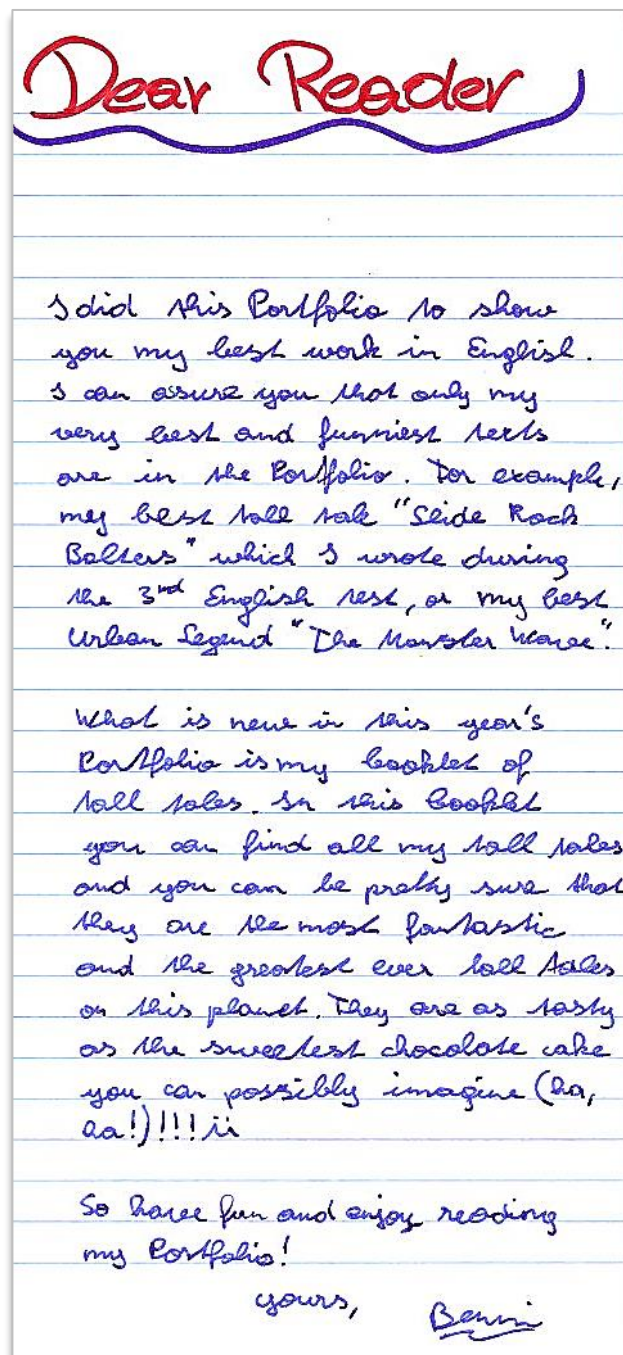 Dear Reader
I did this Portfolio to show
you my best work in English.
I can assure you that only my
very best and funniest texts
are in the Portfolio. For example,
my best tall tale "Slide Rock
Bolters" which I wrote during
the 3rd English test, or my best
Urban Legend "The Monster Wave".
What is new in this year's
Portfolio is my booklet of
tall tales. In this booklet
you can find all my tall tales
and you can be pretty sure that
they are the most fantastic
and the greatest ever tall tales
on this planet. They are as tasty
as the sweetest chocolate cake
you can possibly imagine (ha,
ha!)!!!
So have fun and enjoy reading
my Portfolio!
yours,
Benni